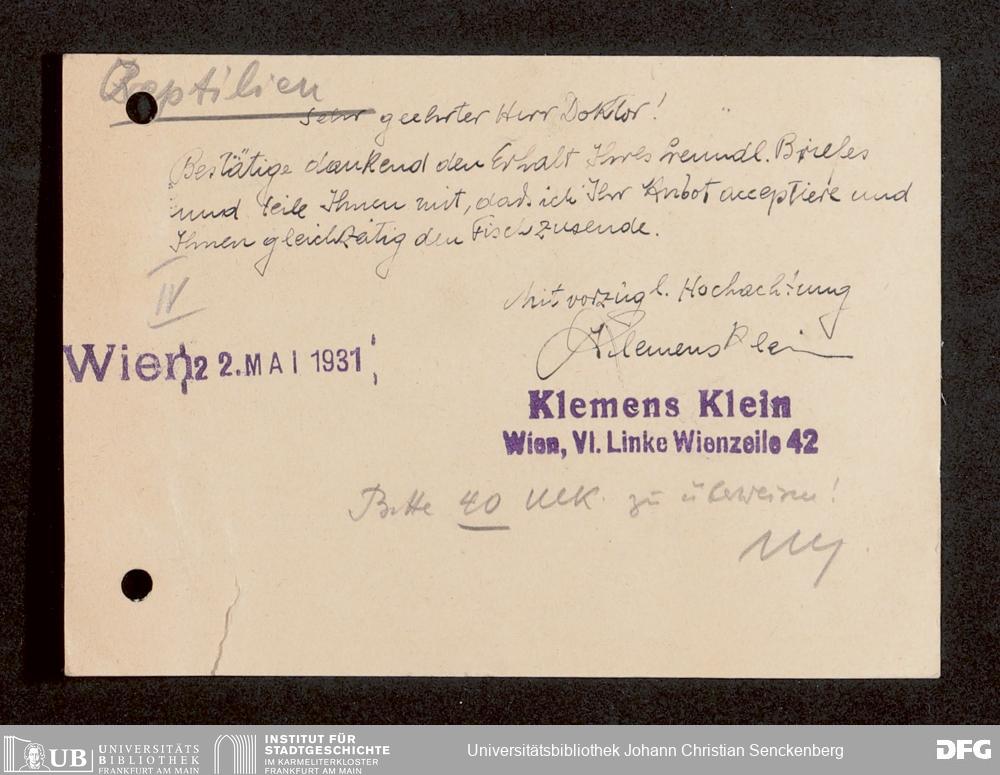 Reptilien
Sehr geehrter Herr Doktor!
Bestätige dankend den Erhalt Ihres freundl. Briefes
und teile Ihnen mit, daß ich Ihr Anbot acceptiere und
Ihnen gleichzeitig den Fisch zusende.
IV
Mit vorzügl. Hochachtung
Klemens Klein
Wien, 22. MAI 1931
Klemens Klein
Wien, VI. Linke Wienzeile 42
Bitte 40 Mk. zu überweisen!
UB UNIVERSITÄTS
BIBLIOTHEK
FRANKFURT AM MAIN
INSTITUT FÜR
STADTGESCHICHTE
IM KARMELITERKLOSTER
FRANKFURT AM MAIN
Universitätsbibliothek Johann Christian Senckenberg
DFG